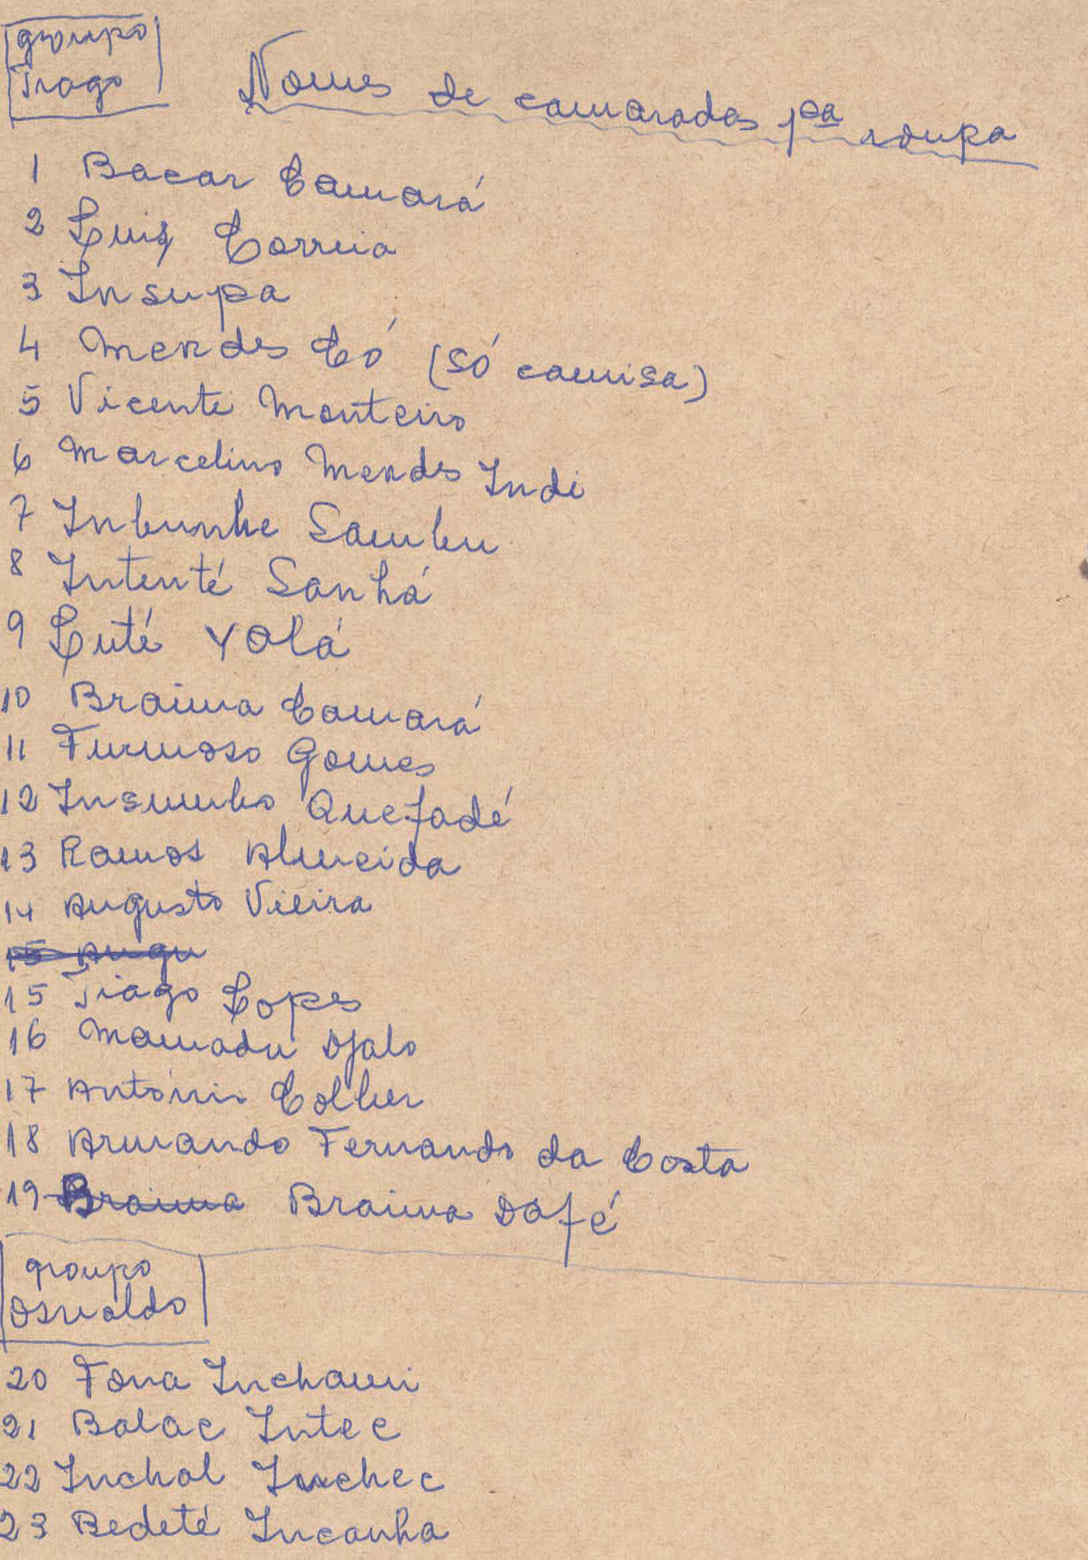 groupo
Tiago
Nomes de camaradas pea roupa
1 Bacar Camará
2 Luis Correia
3 Insupa
4 Mendes Có (só camisa)
5 Vicente Monteiro
6 Marcelino Mendes Indi
7 Inbunhe Sambu
8 Intenté Sanhá
9 Luté Yalá
10 Braima Camará
11 Furmoso Gomes
12 Insumbo Quefadé
13 Ramos Almeida
14 Augusto Vieira
15 Augu
15 Tiago Lopes
16 Mamadu Djalo
17 António Colher
18 Armando Fernando da Costa
19 Braima Braima Dafé
groupo
Osvaldo
20 Fona Inchami
21 Balac Intec
22 Inchal Inchec
23 Bedeté Incanha